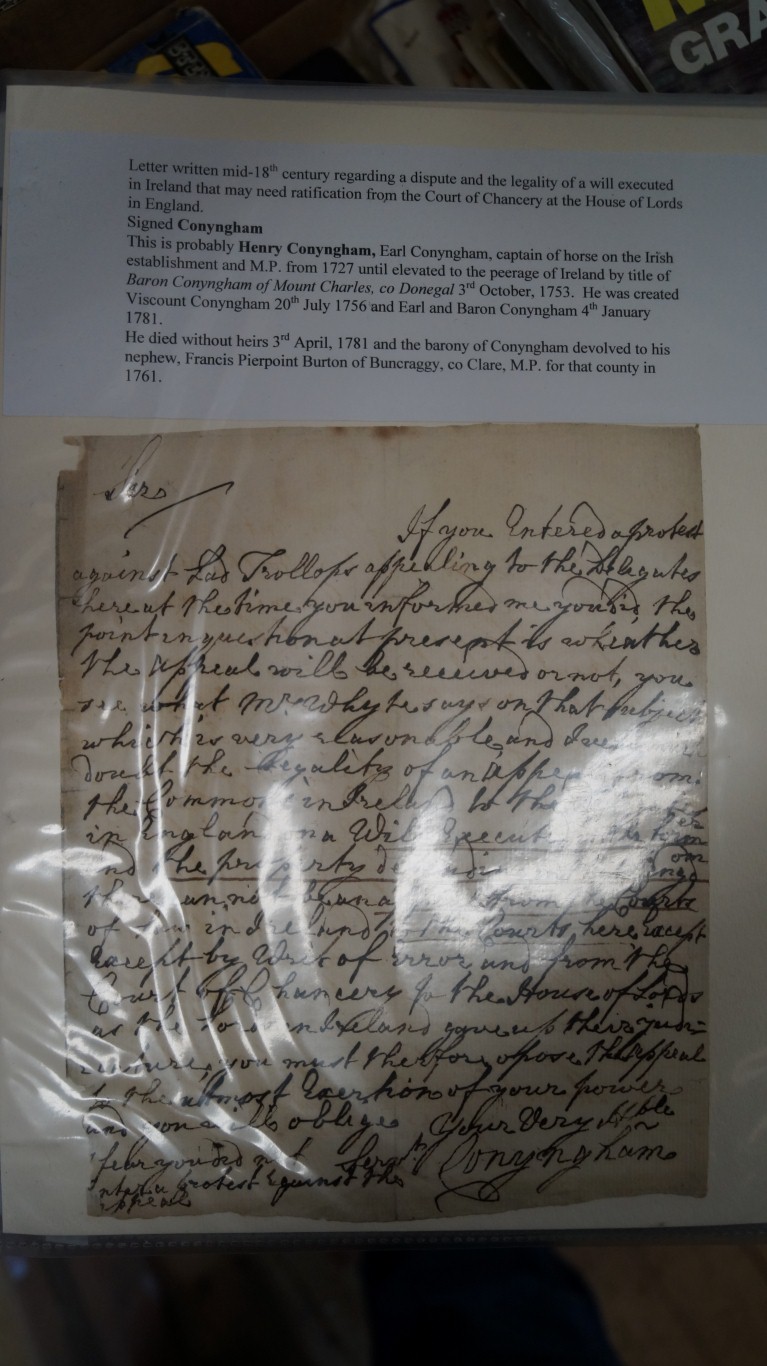 GRA
Letter written mid-18th century regarding a dispute and the legality of a will executed
in Ireland that may need ratification from the Court of Chancery at the House of Lords
in England.
Signed Conyngham
This is probably Henry Conyngham, Earl Conyngham, captain of horse on the Irish
establishment and M.P. from 1727 until elevated to the peerage of Ireland by title of
Baron Conyngham of Mount Charles, co Donegal 3rd October, 1753. He was created
Viscount Conyngham 20th July 1756 and Earl and Baron Conyngham 4th January
1781.
He died without heirs 3rd April, 1781 and the barony of Conyngham devolved to his
nephew, Francis Pierpoint Burton of Buncraggy, co Clare, M.P. for that county in
1761.
If you Entered a protest
against Lad Trollops appealing to the Delegates
here at the time you informed me you did, the
point in question at present is wheather
the appeal will be received or not, you
see what Mr Whyte says on that subject
which is very reasonable, and I
doubt the legality of an appeal
the in Ireland to the
in England on a Will
and the property
from the Courts
of in Ireland to the Courts here, except
Except by Writ of error and from the
Court off Chancery to the House of Lords
as the in Ireland gave up their judi=
you must therfore opose the appeal
to the utmost Exertion of your power
and you will oblige Your Very
fear you did not Conyngham
protest against the
appeal